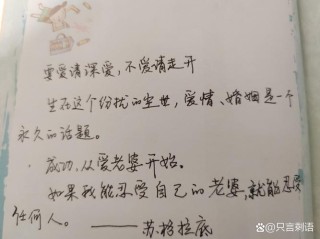 要爱请深爱，不爱请走开
生在这个纷扰的尘世，爱情、婚姻是一个
永久的话题。
成功，从爱老婆开始。
如果我能忍受自己的老婆，就能忍受
任何人。——苏格拉底
@只言刺语